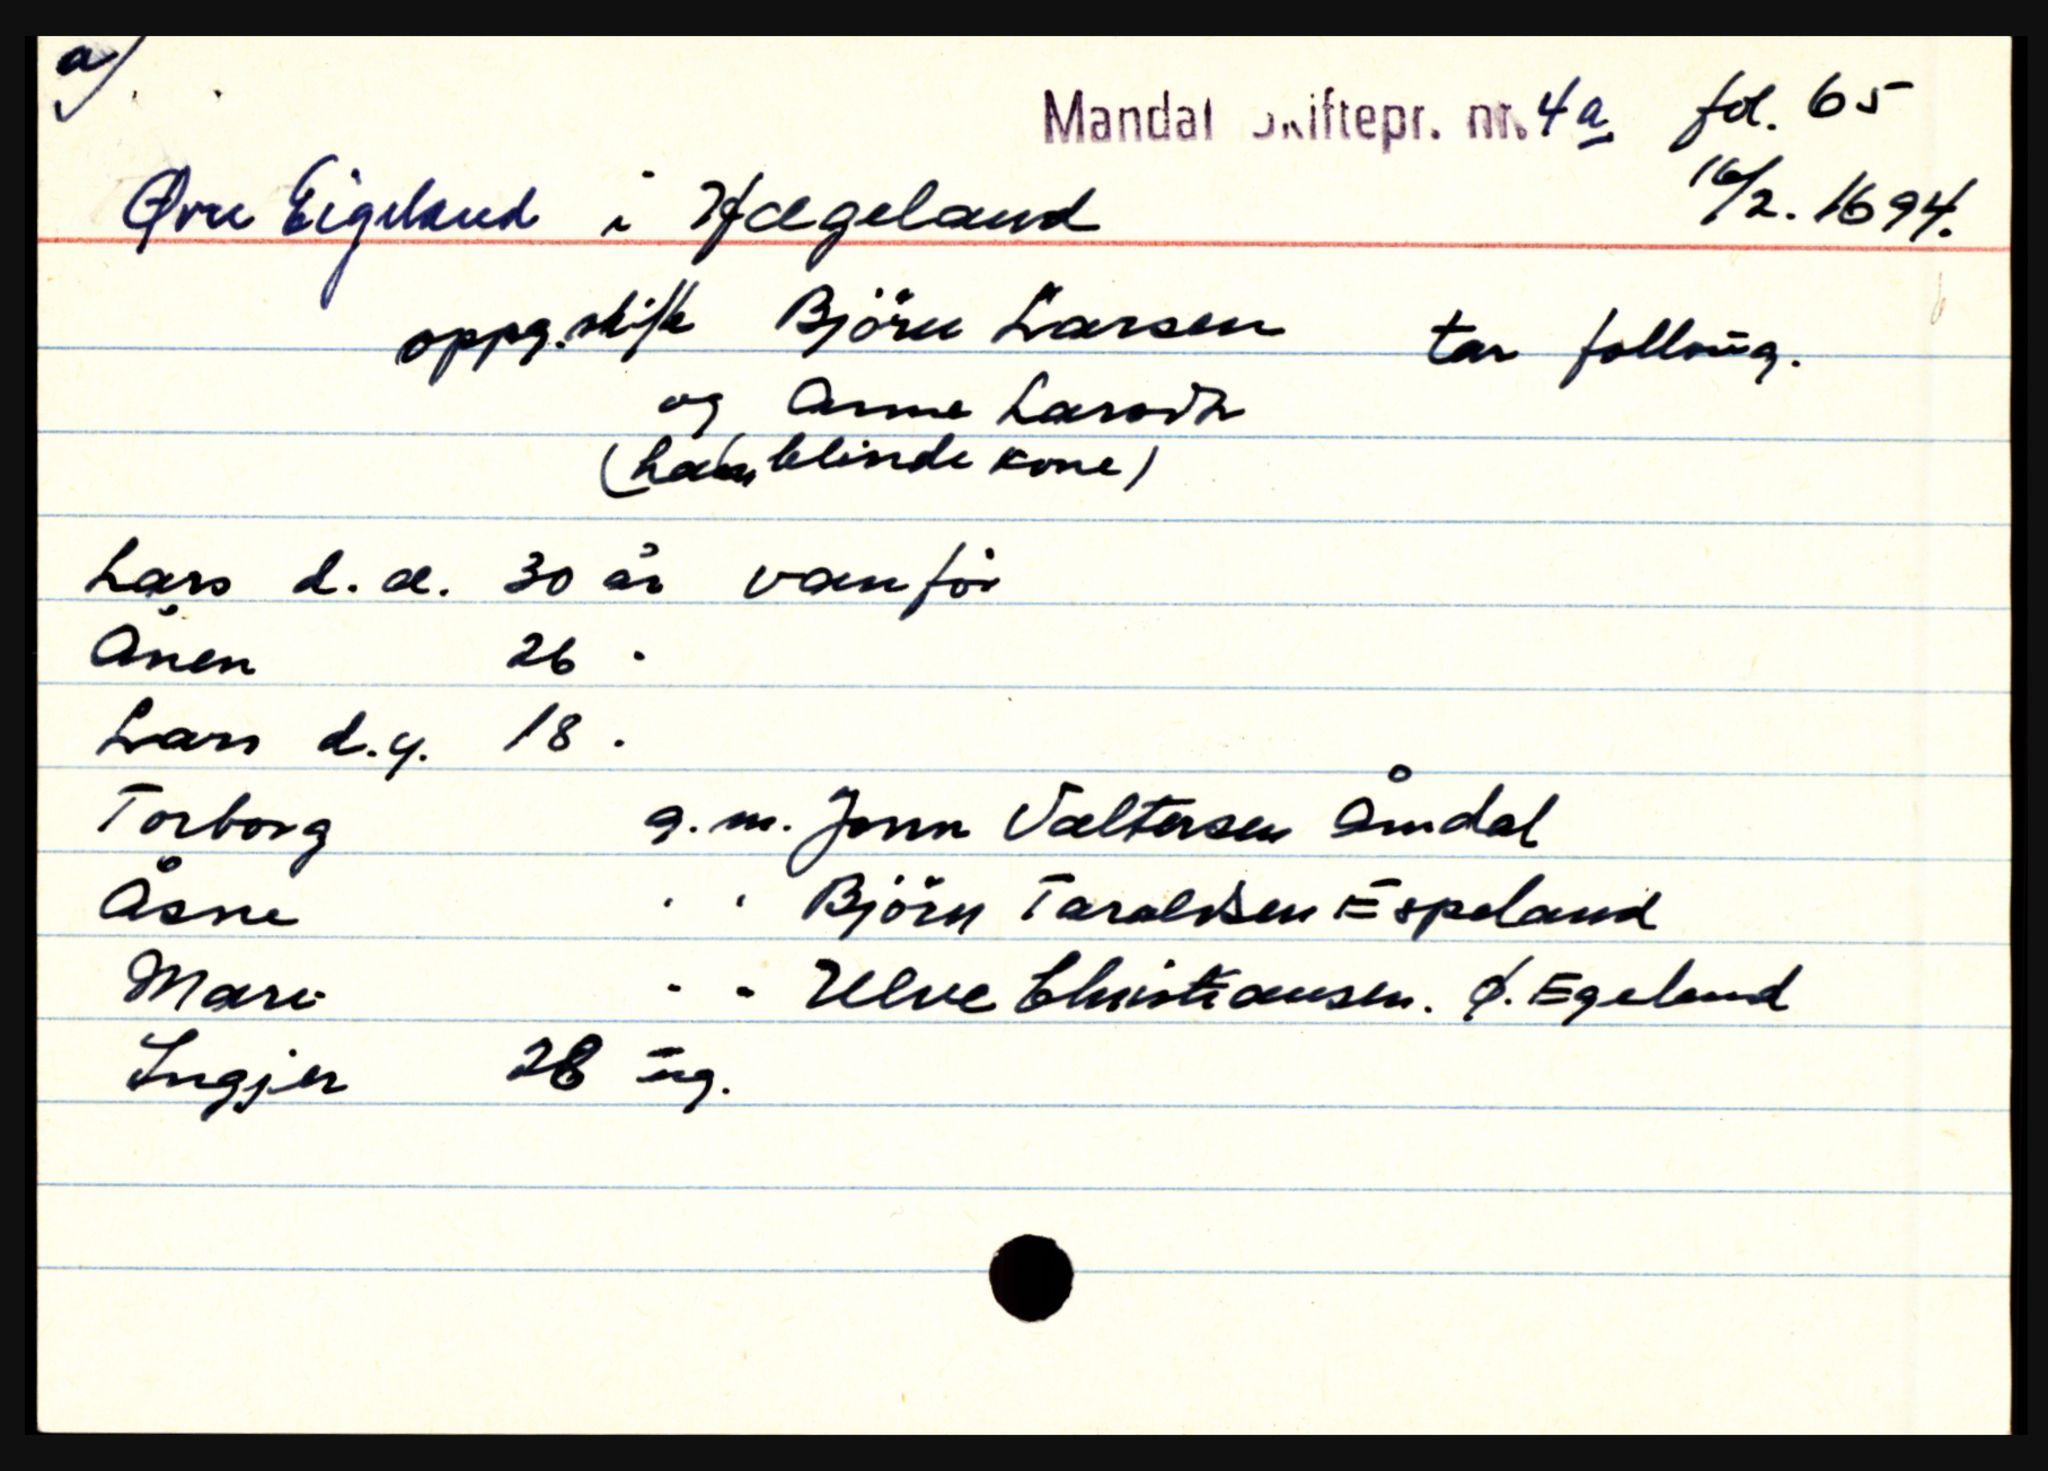 a)
Mandal Skiftepr. nr. 4a fol. 65
Øvre Eigeland i Hægeland 16/2. 1694.
oppg. skifte Björn Larsen tar follaug.
og Anne Larsdtr
(hans blinde kone)
Lars d. æ. 30 år vanför
Ånen 26 "
Lars d.y. 18 "
Torborg g. m. Jonn Valtersen Åmdal
Åsne " " Björn Taraldsen Espeland
Mari " " Ulve Christiansen. Ø. Egeland
Ingjer 28 ug.